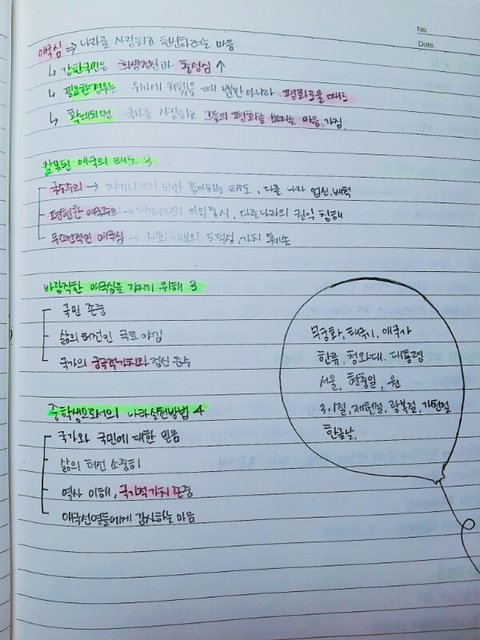 No.
Date.
애국심 → 나라를 사랑하고 헌신하려는 마음
↳ 강한국민은 희생정신과 충성심 ↑
↳ 필요한경우는 위기에 처했을 때 뿐만 아니라 평화로울때도
↳ 확대되면 국가를 사랑하고 그들의 평화를 바라는 마음 가짐
잘못된 애국의 태도 3
국수주의 → 자기나라의 것만 좋아하는 태도, 다른 나라 업신, 배척
편협한 애국주의 → 이익중시, 다른나라의 권익 침해
무조건적인 애국심 → 도덕성, 가치 훼손
바람직한 애국심을 가지기 위해 3
국민 존중
삶의 터전인 국토 아낌
국가의 궁극적가치와 정신 존수
중학생으로서의 나라실천방법 4
국가와 국민에 대한 믿음
삶의 터전 소중히
역사 이해, 국가적가치 존중
애국선열들에게 감사하는 마음
무궁화, 태극기, 애국가
한류, 청와대, 대통령
서울, 원
3.1절, 제헌절, 광복절, 개천절
한글날,